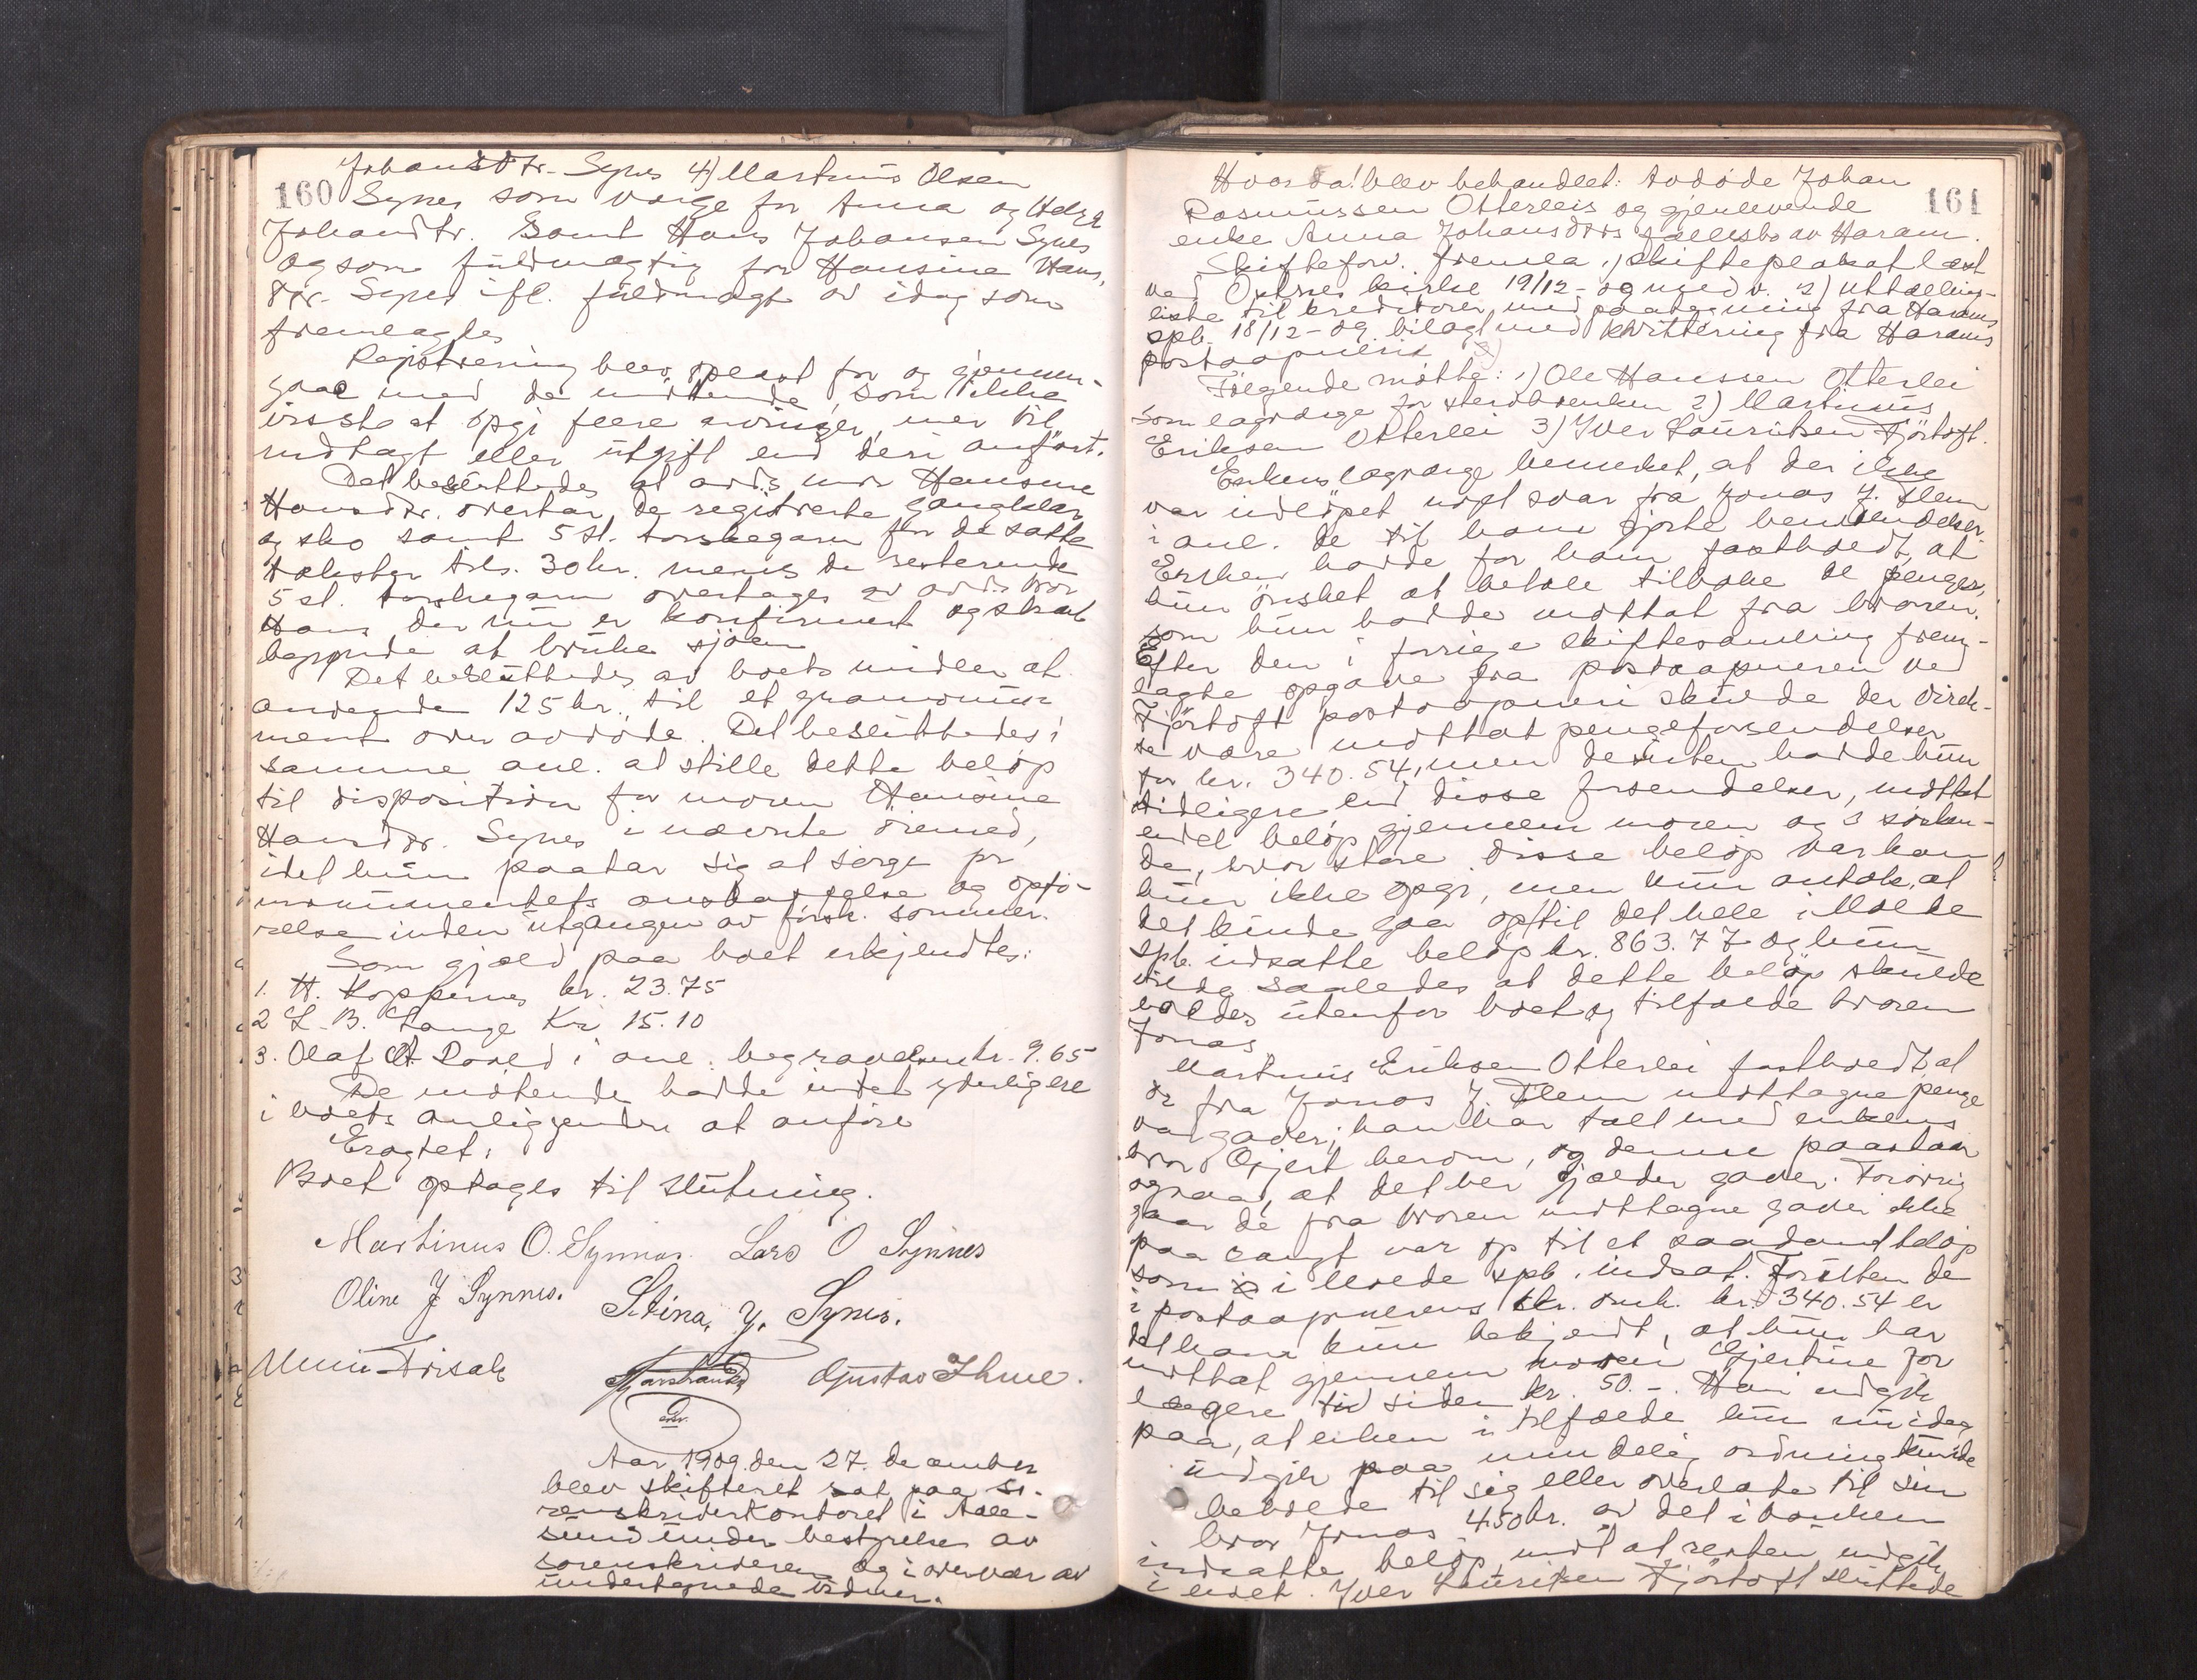 160
Johansdtr. Synes 4) Martinus Olsen
Synes som værge for Anna og Helga
Johansdtr. Samt Hans Johansen Synes
og som fuldmægtig for Hansine Hans-
dtr. Synes ifl. fuldmagt av idag som
fremlagdes
Registrering blev oplæst for og gjennem-
gaaet med de møtende, som ikke
visste at opgi flere eiendeler, mer til
indtægt eller utgift end deri anført.
Det besluttedes at avdødes mor Hansine
Hansdtr. overtar de registrerte gangklær
og sko samt 5 st. torskegarn for de satte
takster tils. 30 kr. mens de resterende
5 st. torskegarn overtages av avdødes bror
Hans der nu er konfirmert og skal
begynde at bruke sjøen
Det besluttedes av boets midler at
anvende 125 kr. til et gravmonu-
ment over avdøde. Det besluttedes i
samme anl. at stille dette beløp
til disposition for moren Hansine
Hansdtr. Synes i nævnte øiemed,
idet hun paatar sig at sørge for
monumentets anskaffelse og opfø-
relse inden utgangen av førstk. sommer.
Som gjæld paa boet erkjendtes:
1. H. Koppernes kr. 23.75
2 L. B. Lange Kr 15.10
3. Olaf A. Roald i anl. begravelsen kr. 9.65
De møtende hadde intet yderligere
i boets anliggender at anføre
Eragtet:
Boet optages til slutning.
Martinus O. Synnes. Lars O Synnes
Oline J Synnes. Stina, J. Synes.
Gustav Ihme.
Aar 1909 den 27. december
blev skifteret sat paa So-
renskriverkontoret i Aale-
sund under bestyrelse av
sorenskriveren og i overvær av
undertegnede vidner.
161
Hvorda! blev behandlet: avdøde Johan
Rasmussen Otterleis og gjenlevende
enke Anna Johansdtrs fællesbo av Haram.
Skifteforv. fremla 1) skifteplakat læst
ved Østnes kirke 19/12 - og 2) uttællings-
liste til kreditorer, med paategning fra Harams
spb. 18/12 - og bilagt med kvittering fra Harams
postaapneri
Følgende møtte: 1) Ole Hanssen Otterlei
som lagværge for sterbøenken 2) Martinus
Eriksen Otterlei 3) Iver Lauritsen Fjørtoft.
Enkens lagværge bemerket, at der ikke
var indløpet noget svar fra Jonas J. Flem
i anl. de til ham gjorte henvendelser.
Enken hadde for ham fastholdt, at
hun ønsket at betale tilbake de penger,
som hun hadde mottat fra broren.
Efter den i forrige skiftesamling frem-
lagte opgave fra postaapneren ved
Fjørtoft postaapneri skulde der direk-
te være mottat pengeforsendelser
for kr. 340.54, men desuten hadde hun
tidligere end disse forsendelser, mottat
endel beløp gjennem moren og 3 søsken-
de, hvor store disse beløp var kan
hun ikke opgi, men hun antok, at
det kunde gaa op til det hele i Molde
spb. indsatte beløp kr. 863.77 og hun
vilde saaledes at dette beløp skulde
holdes utenfor boet og tilfalde broren
Jonas
Martinus Eriksen Otterlei fastholdt, at
de fra Jonas J. Flem mottagne penge
var gaver; han har talt med enkens
bror Gjert herom, og denne paastaar
ogsaa, at det her gjælder gaver. Forøvrig
gaar de fra broren mottagne gaver ikke
paa langt nær op til et saadant beløp
som i Molde spb. indsat. Foruten de
i postaapnerens skr. omh. kr. 340.54 er
det ham kun bekjendt, at hun har
mottat gjennem moren Gjertine for
længere tid siden kr. 50.-. Han indgik
paa, at enken i tilfælde hun nu idag
indgik paa mindelig ordning kunde
beholde til sig eller overlate til sin
bror Jonas 450 kr. av det i banken
indsatte beløp, mot at resten indgik
i boet. Iver Lauritsen Fjørtoft sluttede